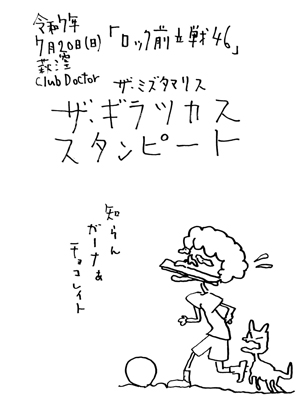 令和7年
7月20日(日)
荻窪
Club Doctor
「ロック前立戦46」
ザ・ミズタマリス
ザ・ギラツカス
スタンピート
知らん
ガーナ&
チョコレイト